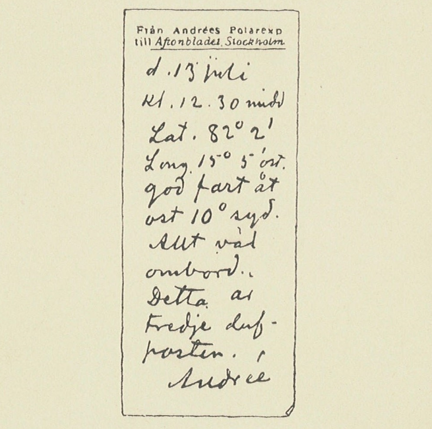 Från Andrées Polarexp
till Aftonbladet, Stockholm
d. 13 juli
kl. 12.30 midd
Lat. 82° 2'
Long. 15° 5' ost.
god fart åt
ost 10° syd.
Allt väl
ombord.
Detta är
tredje duf-
posten.
Andrée